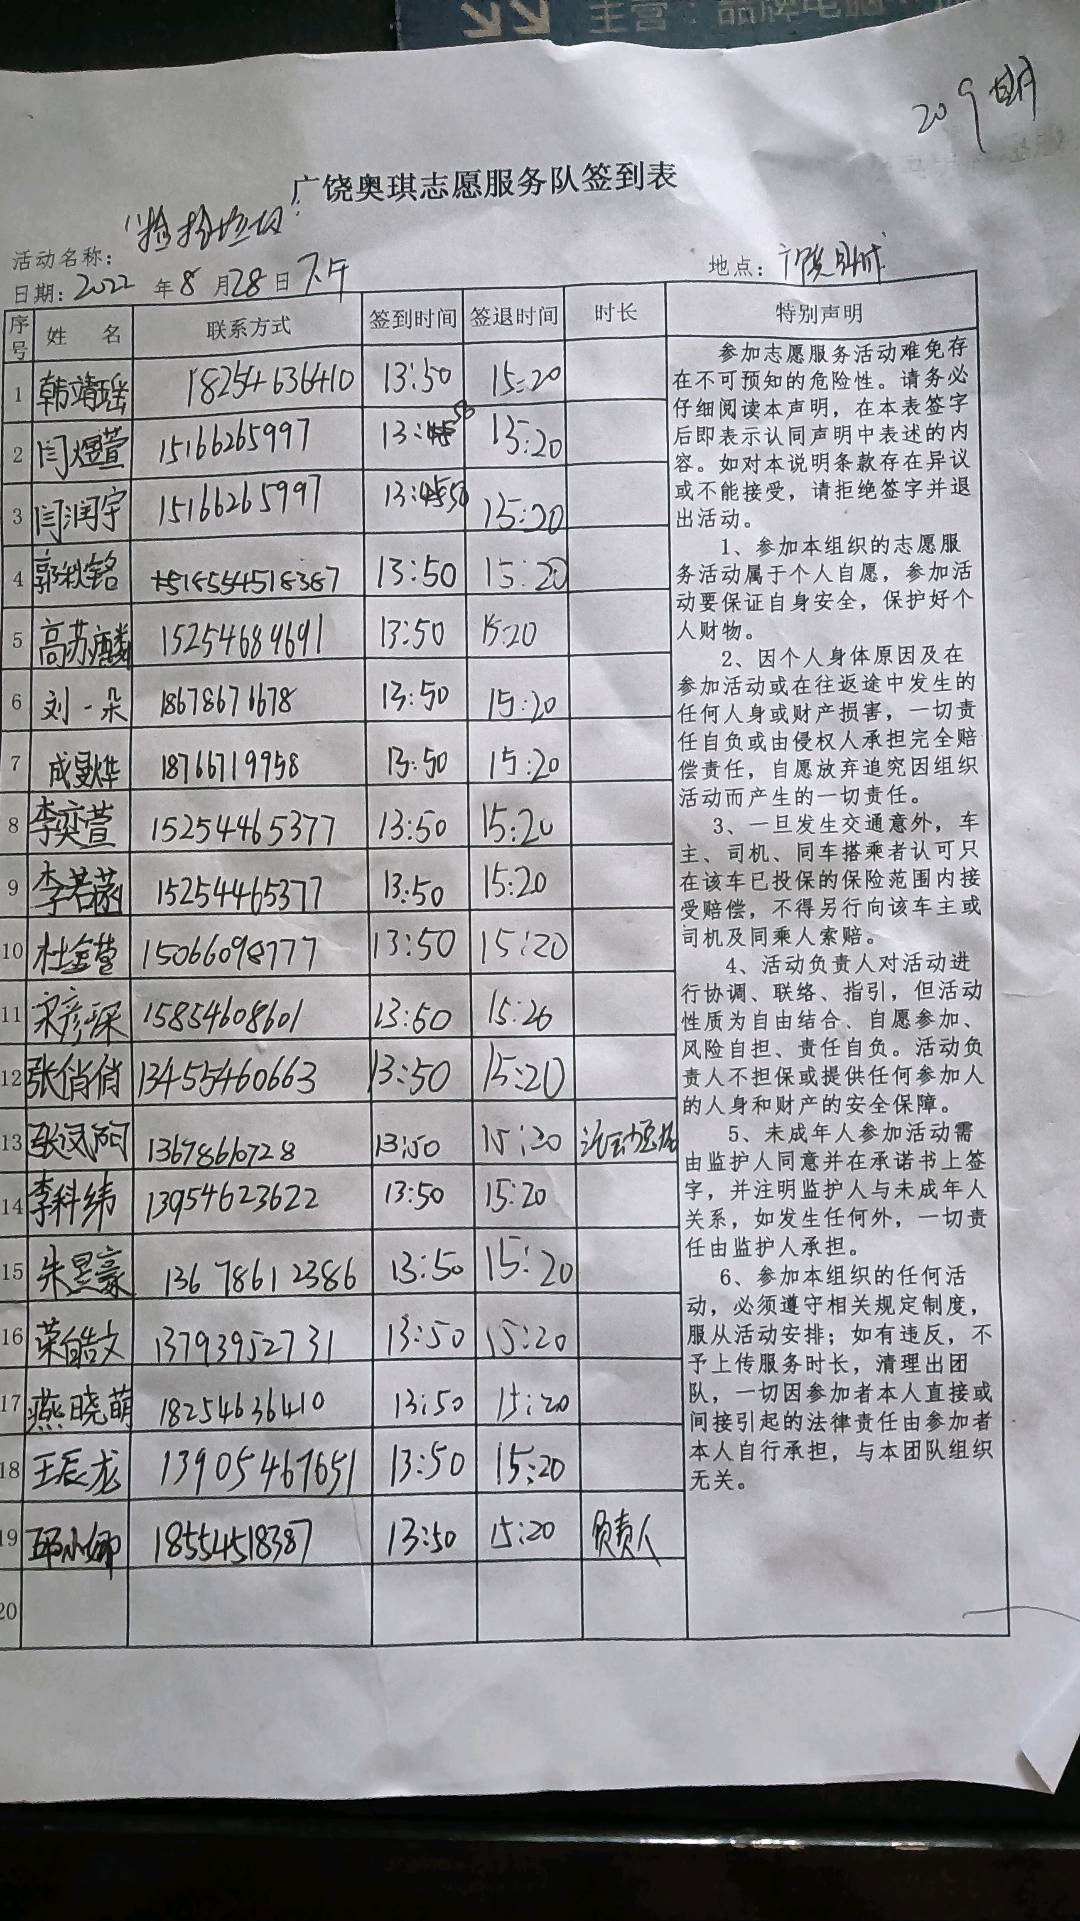 主营：品牌电脑
209期
广饶奥琪志愿服务队签到表
活动名称："捡拾垃圾"
日期：2022年8月28日下午 地点：
序号 姓 名 联系方式 签到时间 签退时间 时长 特别声明
1 韩靖瑶 18254636410 13:50 15:20
2 闫煜萱 15166265997 13:50 15:20
3 闫润宇 15166265997 13:50 15:20
4 郭秋铭 18554518387 13:50 15:20
5 高苏麟 15254689691 13:50 15:20
6 刘一朵 18678671678 13:50 15:20
7 成昱烨 18766719958 13:50 15:20
8 李奕萱 15254465377 13:50 15:20
9 李若菡 15254465377 13:50 15:20
10 杜萱 15066098777 13:50 15:20
11 宋彦琛 15854608601 13:50 15:20
12 张俏俏 13455460663 13:50 15:20
13 张凤阿 13678660728 13:50 15:20
14 李科纬 13954623622 13:50 15:20
15 朱昱豪 13678612386 13:50 15:20
16 荣皓文 13793952731 13:50 15:20
17 燕晓萌 18254636410 13:50 15:20
18 王辰龙 13905467651 13:50 15:20
19 邱小娜 18554518387 13:50 15:20 负责人
20
参加志愿服务活动难免存
在不可预知的危险性。请务必
仔细阅读本声明，在本表签字
后即表示认同声明中表述的内
容。如对本说明条款存在异议
或不能接受，请拒绝签字并退
出活动。
1、参加本组织的志愿服
务活动属于个人自愿，参加活
动要保证自身安全，保护好个
人财物。
2、因个人身体原因及在
参加活动或在往返途中发生的
任何人身或财产损害，一切责
任自负或由侵权人承担完全赔
偿责任，自愿放弃追究因组织
活动而产生的一切责任。
3、一旦发生交通意外，车
主、司机、同车搭乘者认可只
在该车已投保的保险范围内接
受赔偿，不得另行向该车主或
司机及同乘人索赔。
4、活动负责人对活动进
行协调、联络、指引，但活动
性质为自由结合、自愿参加、
风险自担、责任自负。活动负
责人不担保或提供任何参加人
的人身和财产的安全保障。
5、未成年人参加活动需
由监护人同意并在承诺书上签
字，并注明监护人与未成年人
关系，如发生任何外，一切责
任由监护人承担。
6、参加本组织的任何活
动，必须遵守相关规定制度，
服从活动安排；如有违反，不
予上传服务时长，清理出团
队，一切因参加者本人直接或
间接引起的法律责任由参加者
本人自行承担，与本团队组织
无关。